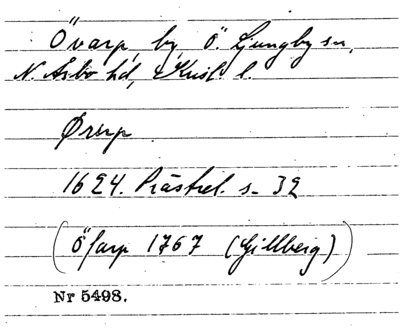 Övarp, by, Ö. Ljungby sn,
N. Åsbo hd, Krist. l.
Ørup
1624. Prästrel. s. 32
(Öfarp 1767 (Gillberg))
Nr 5498.